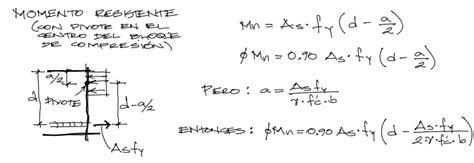 MOMENTO RESISTENTE
(CON PIVOTE EN EL
CENTRO DEL BLOQUE
DE COMPRESIÓN)
a/2
d
PIVOTE
d-a/2
Asfy
Mn = As·fy (d - a/2)
ϕMn = 0.90 As·fy (d - a/2)
PERO: a = Asfy / γ·f'c·b
ENTONCES: ϕMn = 0.90 As·fy (d - As·fy / 2·γ·f'c·b)